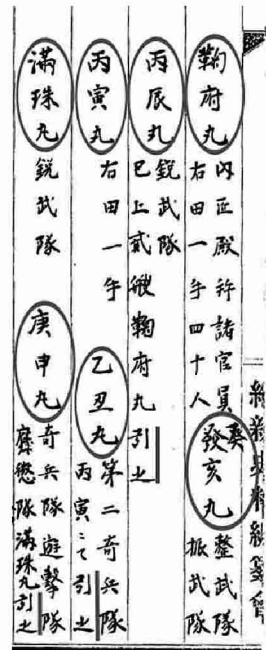 鞠府丸
内匠殿幷諸官員
右田一手四十人
癸亥丸
整武隊
振武隊
丙辰丸
鋭武隊
已上貳艘鞠府丸引之
丙寅丸
右田一手
乙丑丸
第二奇兵隊
丙寅ニて引之
満珠丸
鋭武隊
庚申丸
奇兵隊遊撃隊
膺懲隊満珠丸引之